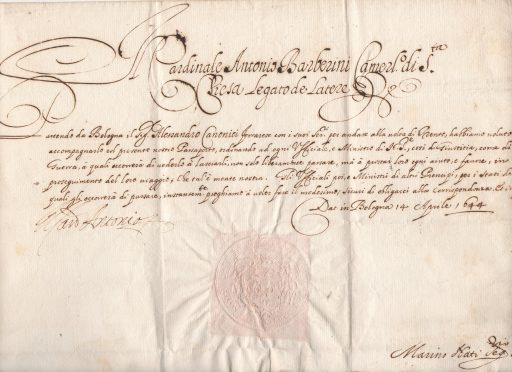 Il Cardinale Antonio Barberini Camerl.º di S.ta
Chiesa Legato de Latere &c.
artendo da Bologna il S.r Alessandro Canoniti forasiero con i suoi per andare alla volta di Firenze, habbiamo voluto
accompagnarlo col presente nostro Passaporto, ordinando ad ogni Officiale, e Ministro di N. S.re, così di Giustitia, come di
Guerra, a quali occorrerà di vederlo ò lasciarli, non solo liberamente passare, mà è prestar loro ogni aiuto, e favore, in
proseguimento del loro viaggio, che tal' è mente nostra. Gli Officiali poi, e Ministri di altri Prencipi, per i Stati de
quali gli occorrerà di passare, instantem.te preghiamo à voler fare il medesimo, sicuri di obligarci alla Corrispondenza.
Dat in Bologna 14 Aprile 1644
Card Antonio
Marino